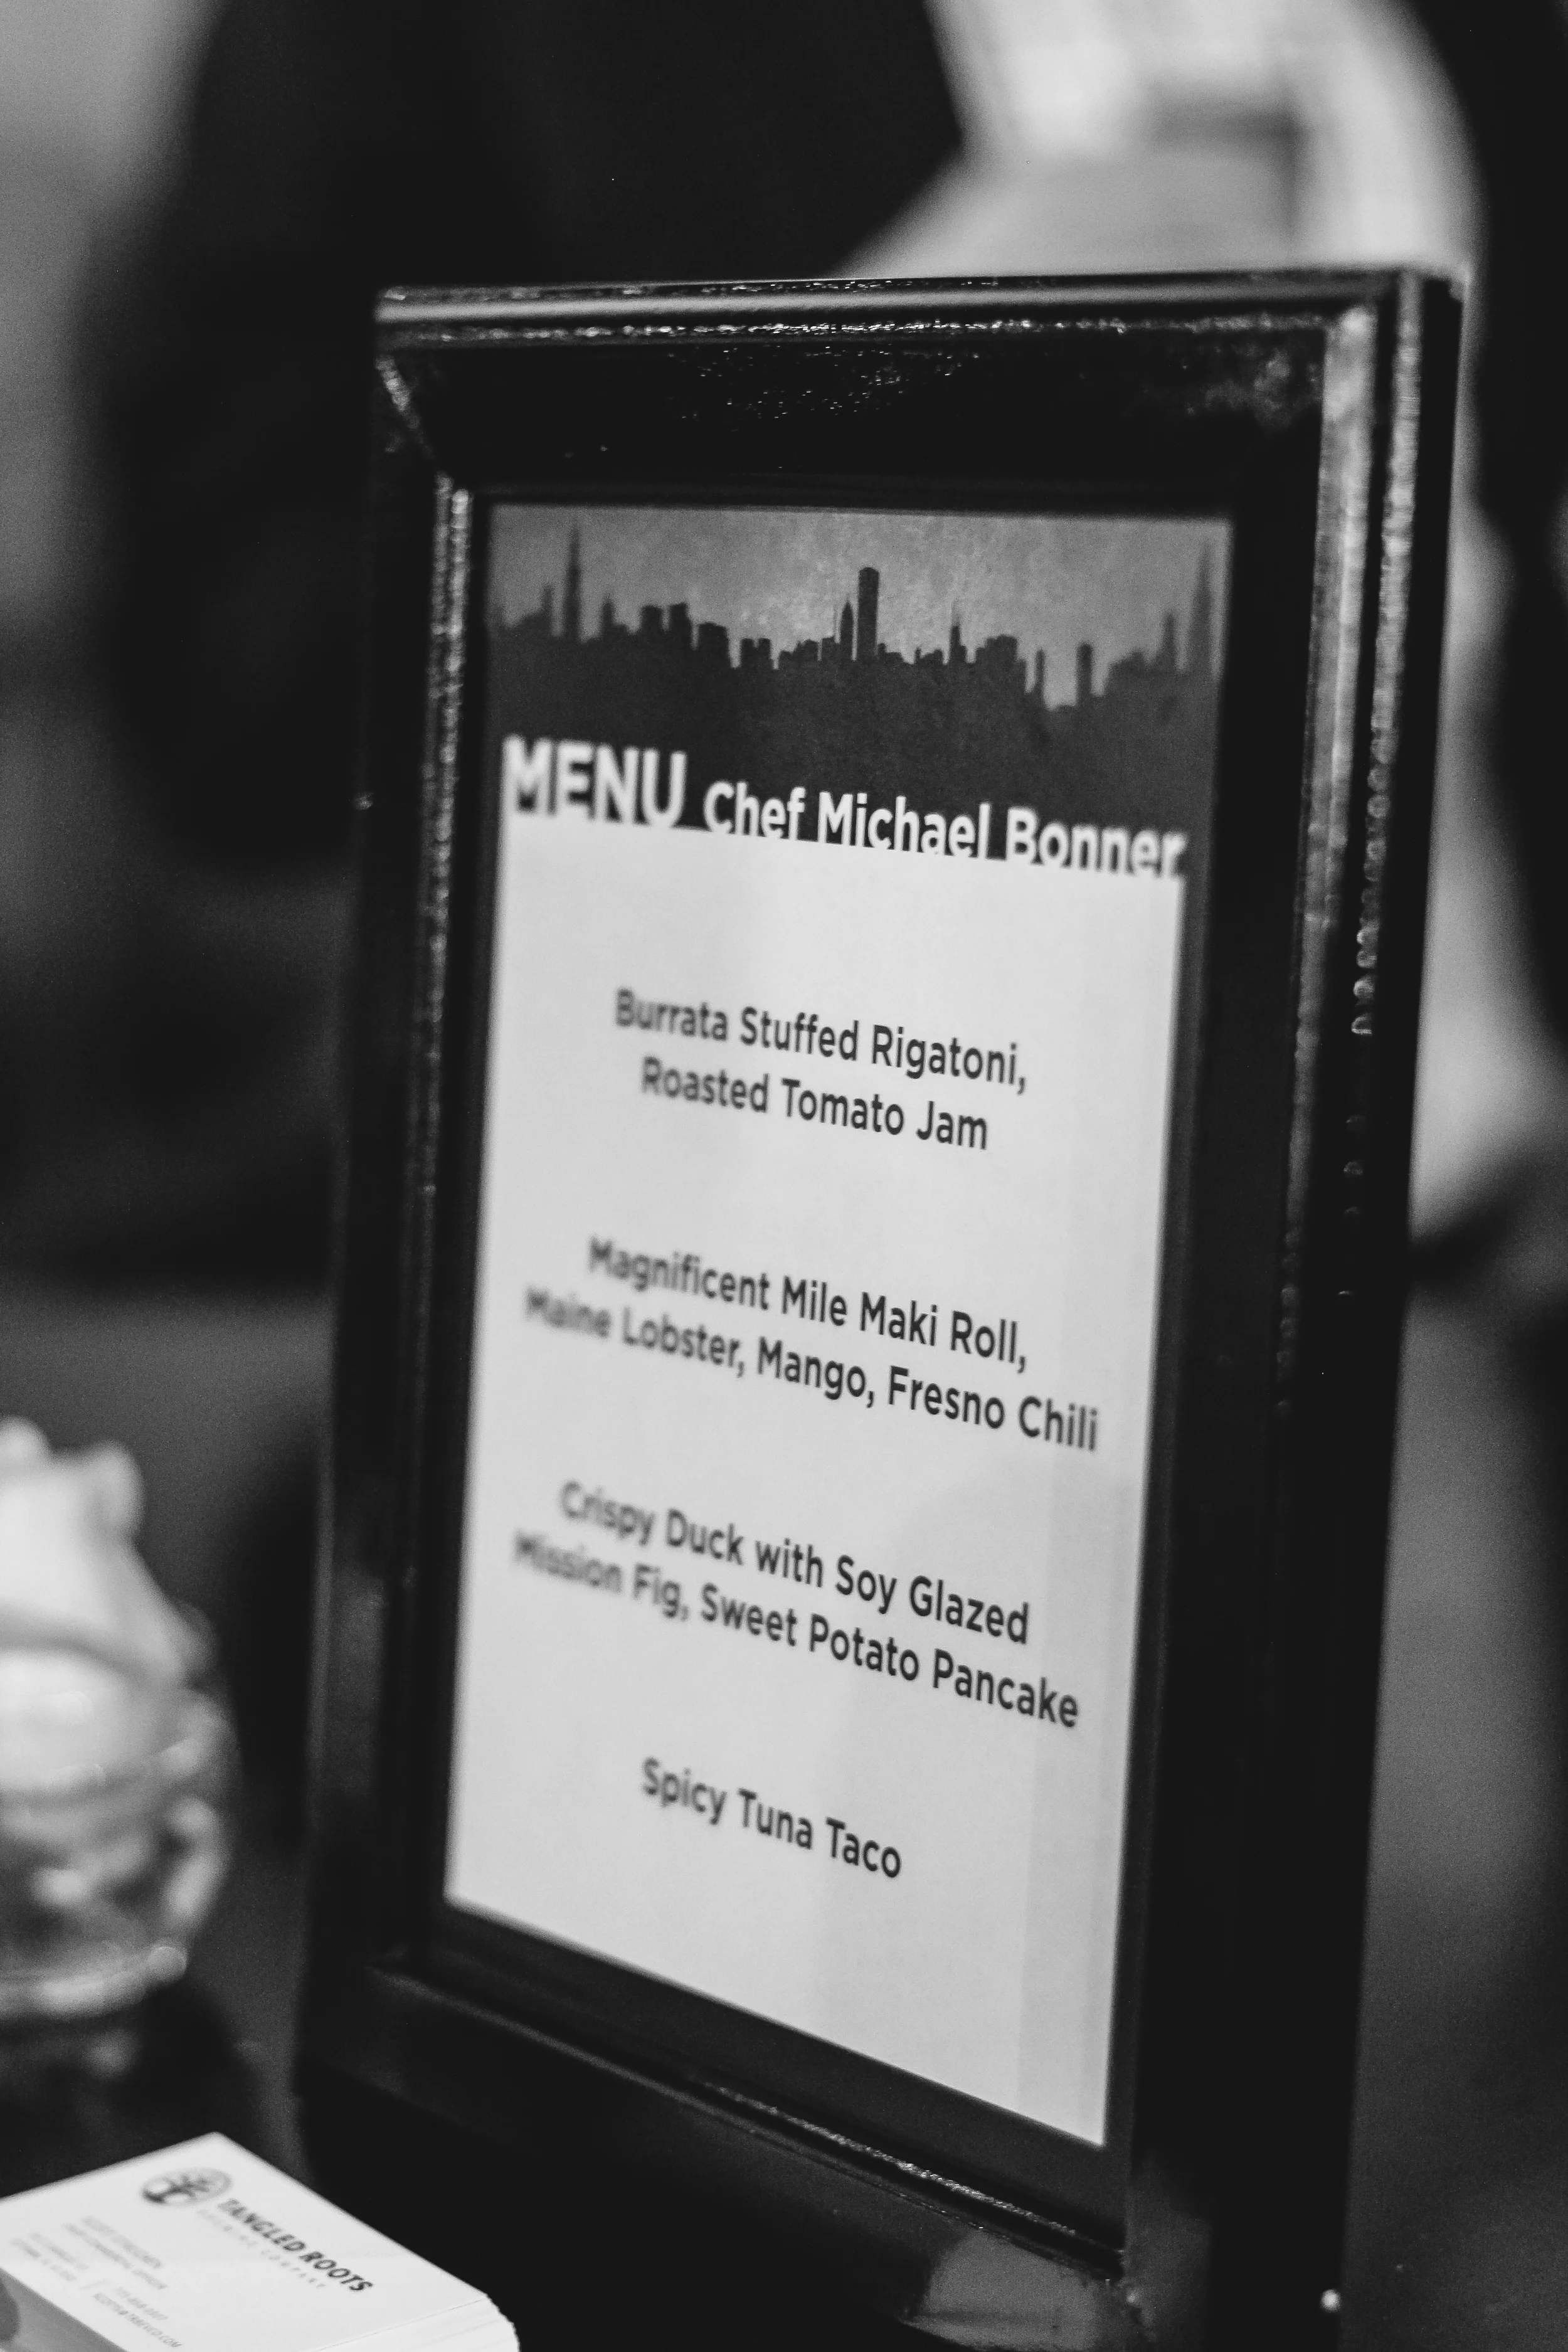 MENU Chef Michael Bonner
Burrata Stuffed Rigatoni,
Roasted Tomato Jam
Magnificent Mile Maki Roll,
Maine Lobster, Mango, Fresno Chili
Crispy Duck with Soy Glazed
Mission Fig, Sweet Potato Pancake
Spicy Tuna Taco
TANGLED ROOTS
BREWING COMPANY